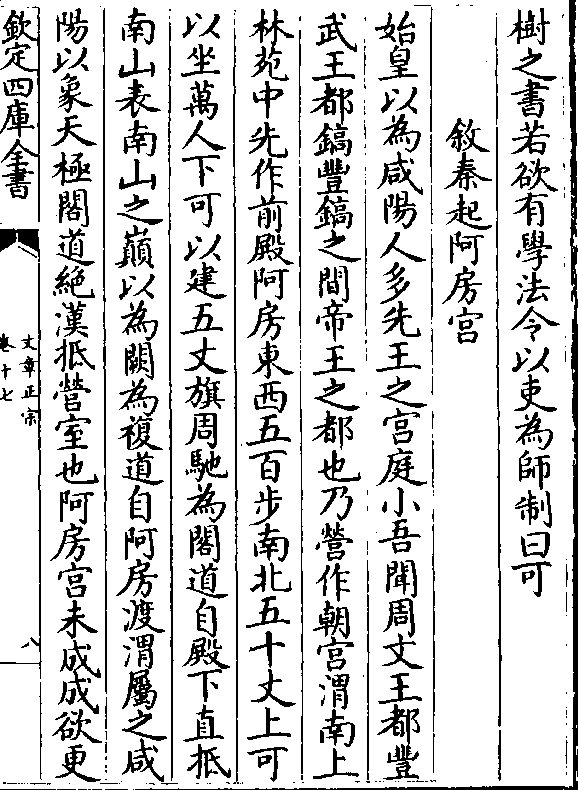 樹之書若欲有學法令以吏為師制曰可
敘秦起阿房宫
始皇以為咸陽人多先王之宫庭小吾聞周文王都豐
武王都鎬豐鎬之間帝王之都也乃營作朝宫渭南上
林苑中先作前殿阿房東西五百步南北五十丈上可
以坐萬人下可以建五丈旗周馳為閣道自殿下直抵
南山表南山之巔以為闕為複道自阿房渡渭屬之咸
陽以象天極閣道絶漢抵營室也阿房宫未成成欲更
欽定四庫全書
文章正宗
卷十七
八